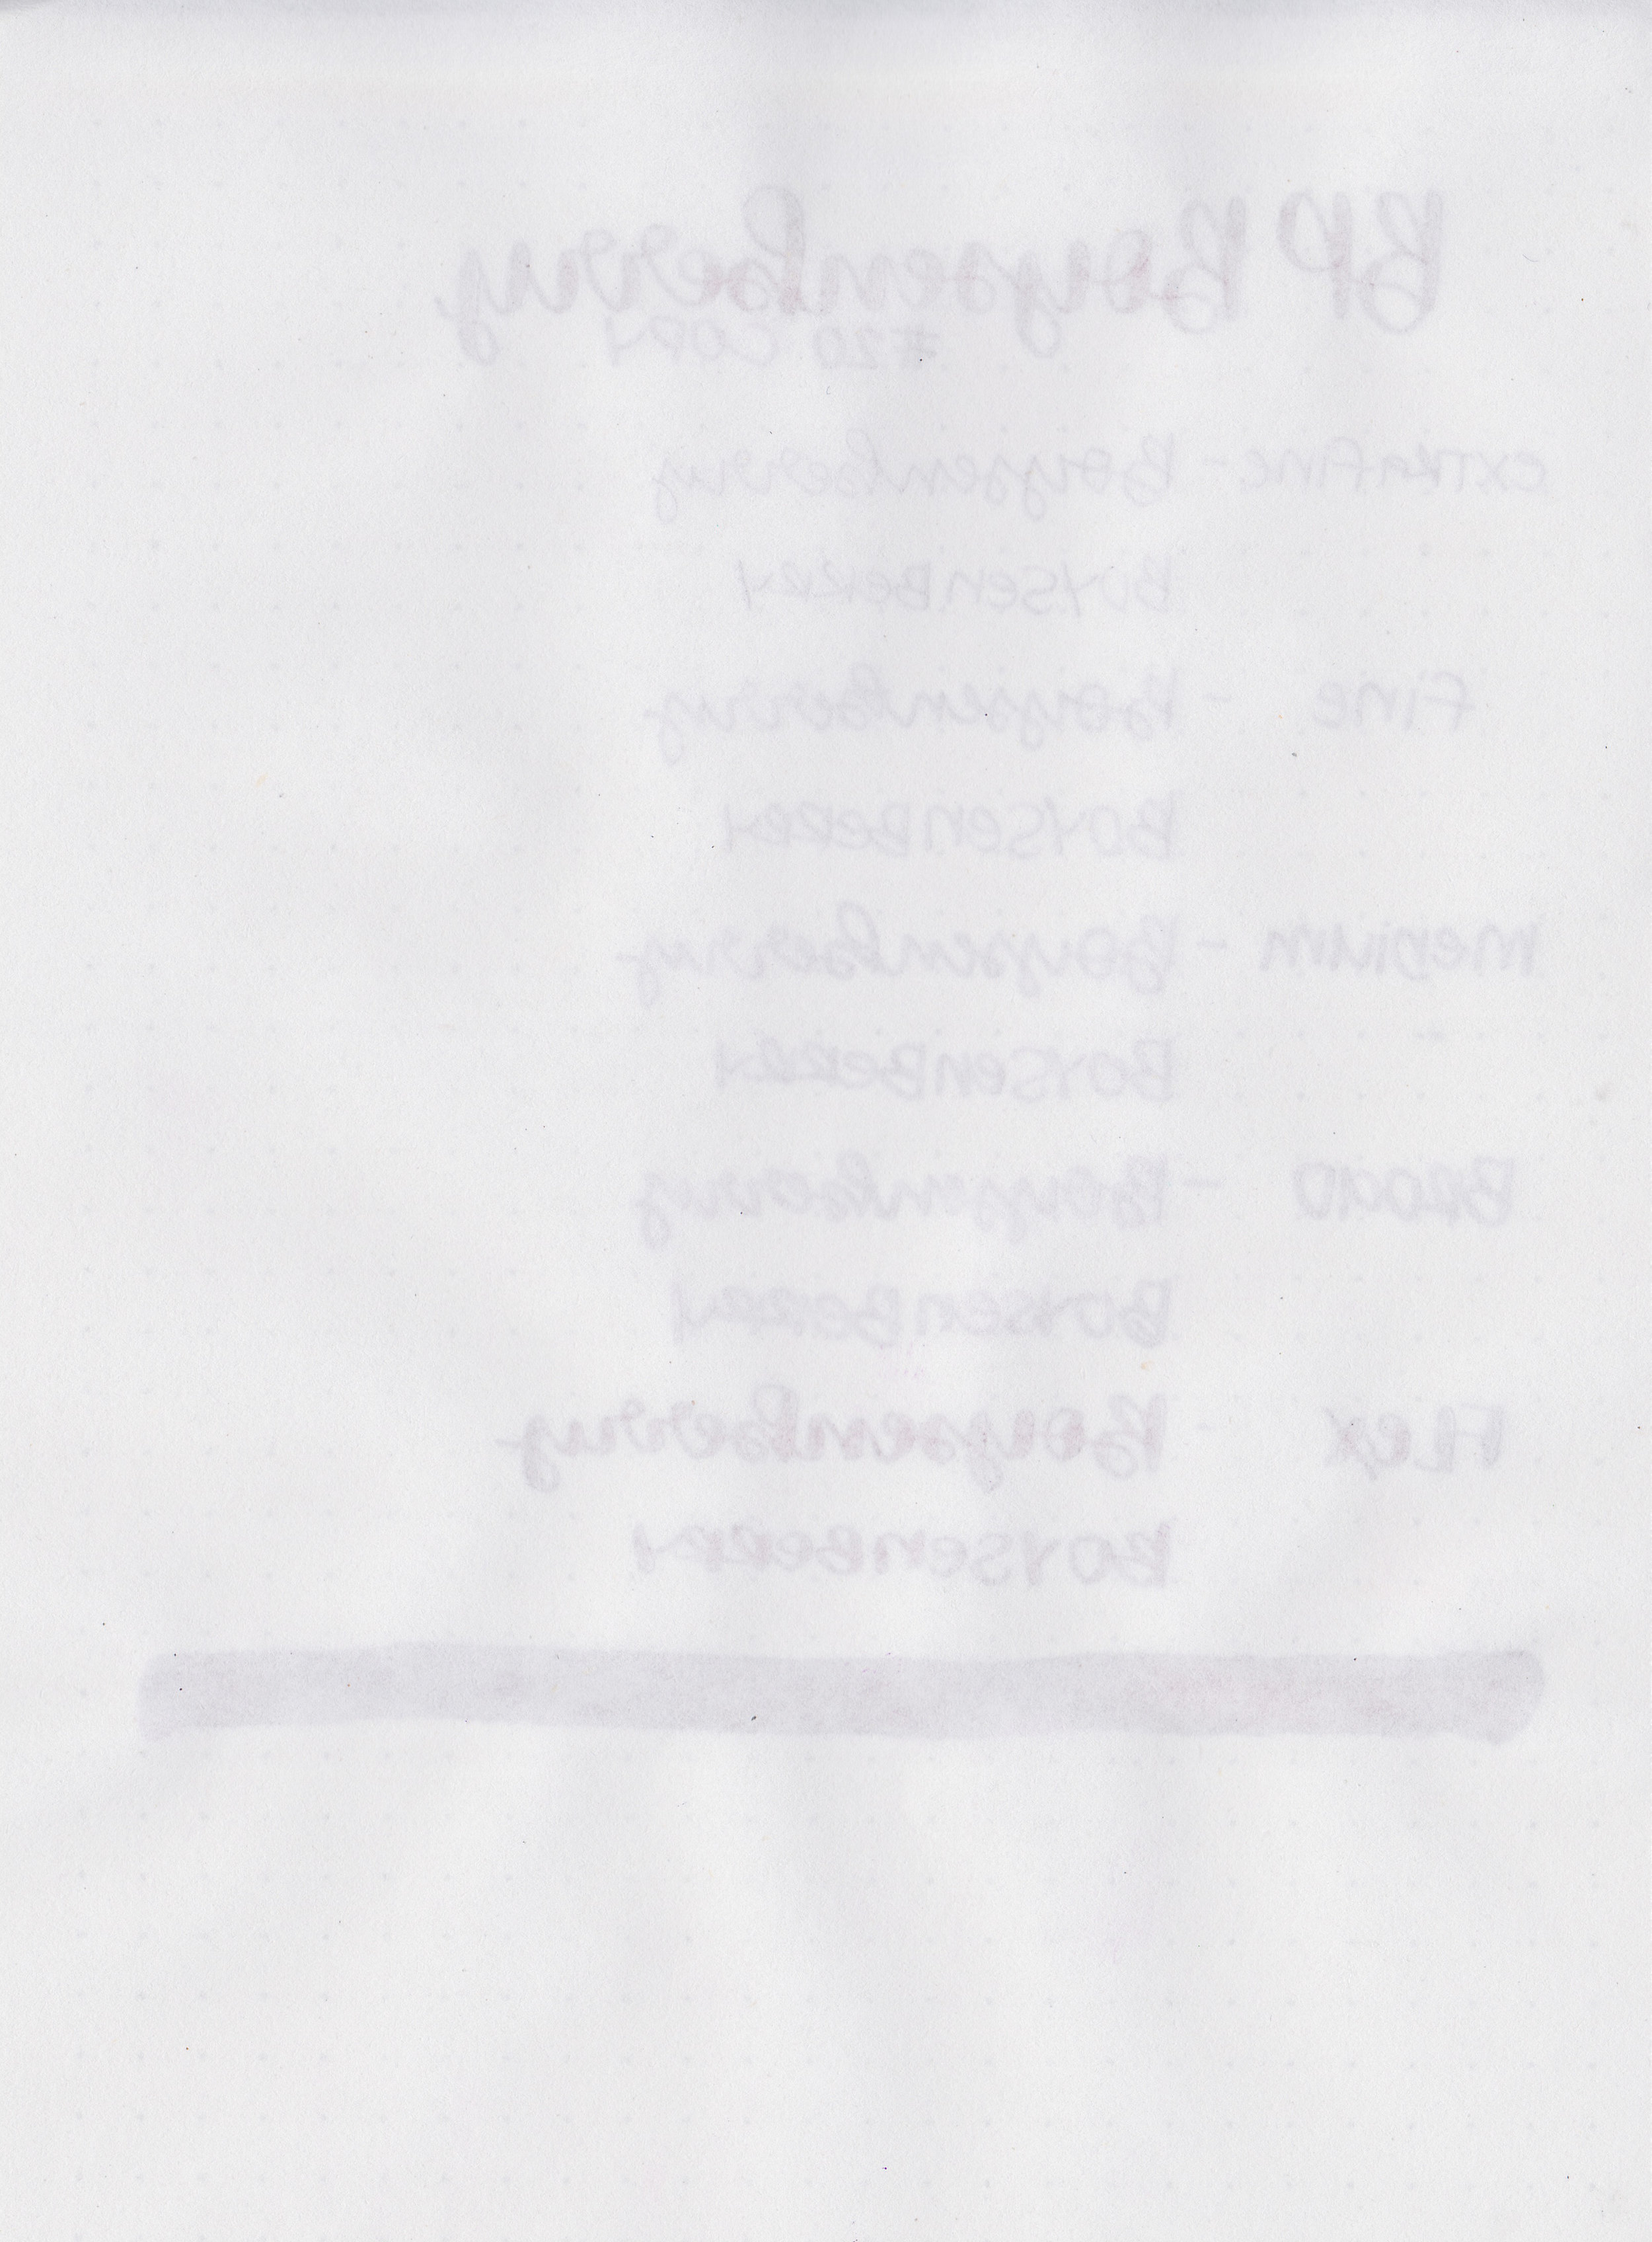 BP Boysenberry
#20 COPY
EXTRA FINE - Boysenberry
BOYSENBERRY
FINE - Boysenberry
BOYSENBERRY
MEDIUM - Boysenberry
BOYSENBERRY
BROAD - Boysenberry
BOYSENBERRY
FLEX - Boysenberry
BOYSENBERRY